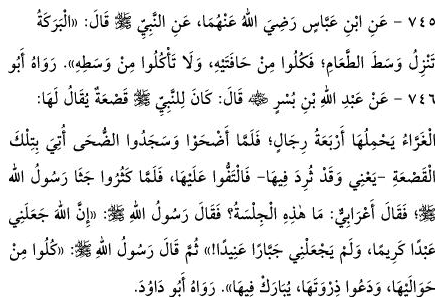 ٧٤٥ - عَنِ ابْنِ عَبَّاسٍ رَضِيَ اللهُ عَنْهُمَا، عَنِ النَّبِيِّ ﷺ قَالَ: «الْبَرَكَةُ
تَنْزِلُ وَسَطَ الطَّعَامِ؛ فَكُلُوا مِنْ حَافَتَيْهِ، وَلَا تَأْكُلُوا مِنْ وَسَطِهِ». رَوَاهُ أَبُو
٧٤٦ - عَنْ عَبْدِ اللهِ بْنِ بُسْرٍ ﷺ قَالَ: كَانَ لِلنَّبِيِّ ﷺ قَصْعَةٌ يُقَالُ لَهَا:
الْغَرَّاءُ يَحْمِلُهَا أَرْبَعَةُ رِجَالٍ؛ فَلَمَّا أَضْحَوْا وَسَجَدُوا الضُّحَى أُتِيَ بِتِلْكَ
الْقَصْعَةِ -يَعْنِي وَقَدْ ثُرِدَ فِيهَا- فَالْتَفُّوا عَلَيْهَا، فَلَمَّا كَثُرُوا جَثَا رَسُولُ اللهِ
ﷺ؛ فَقَالَ أَعْرَابِيٌّ: مَا هَذِهِ الْجِلْسَةُ؟ فَقَالَ رَسُولُ اللهِ ﷺ: «إِنَّ اللهَ جَعَلَنِي
عَبْدًا كَرِيمًا، وَلَمْ يَجْعَلْنِي جَبَّارًا عَنِيدًا!» ثُمَّ قَالَ رَسُولُ اللهِ ﷺ: «كُلُوا مِنْ
حَوَالَيْهَا، وَدَعُوا ذِرْوَتَهَا، يُبَارَكْ فِيهَا». رَوَاهُ أَبُو دَاوُدَ.